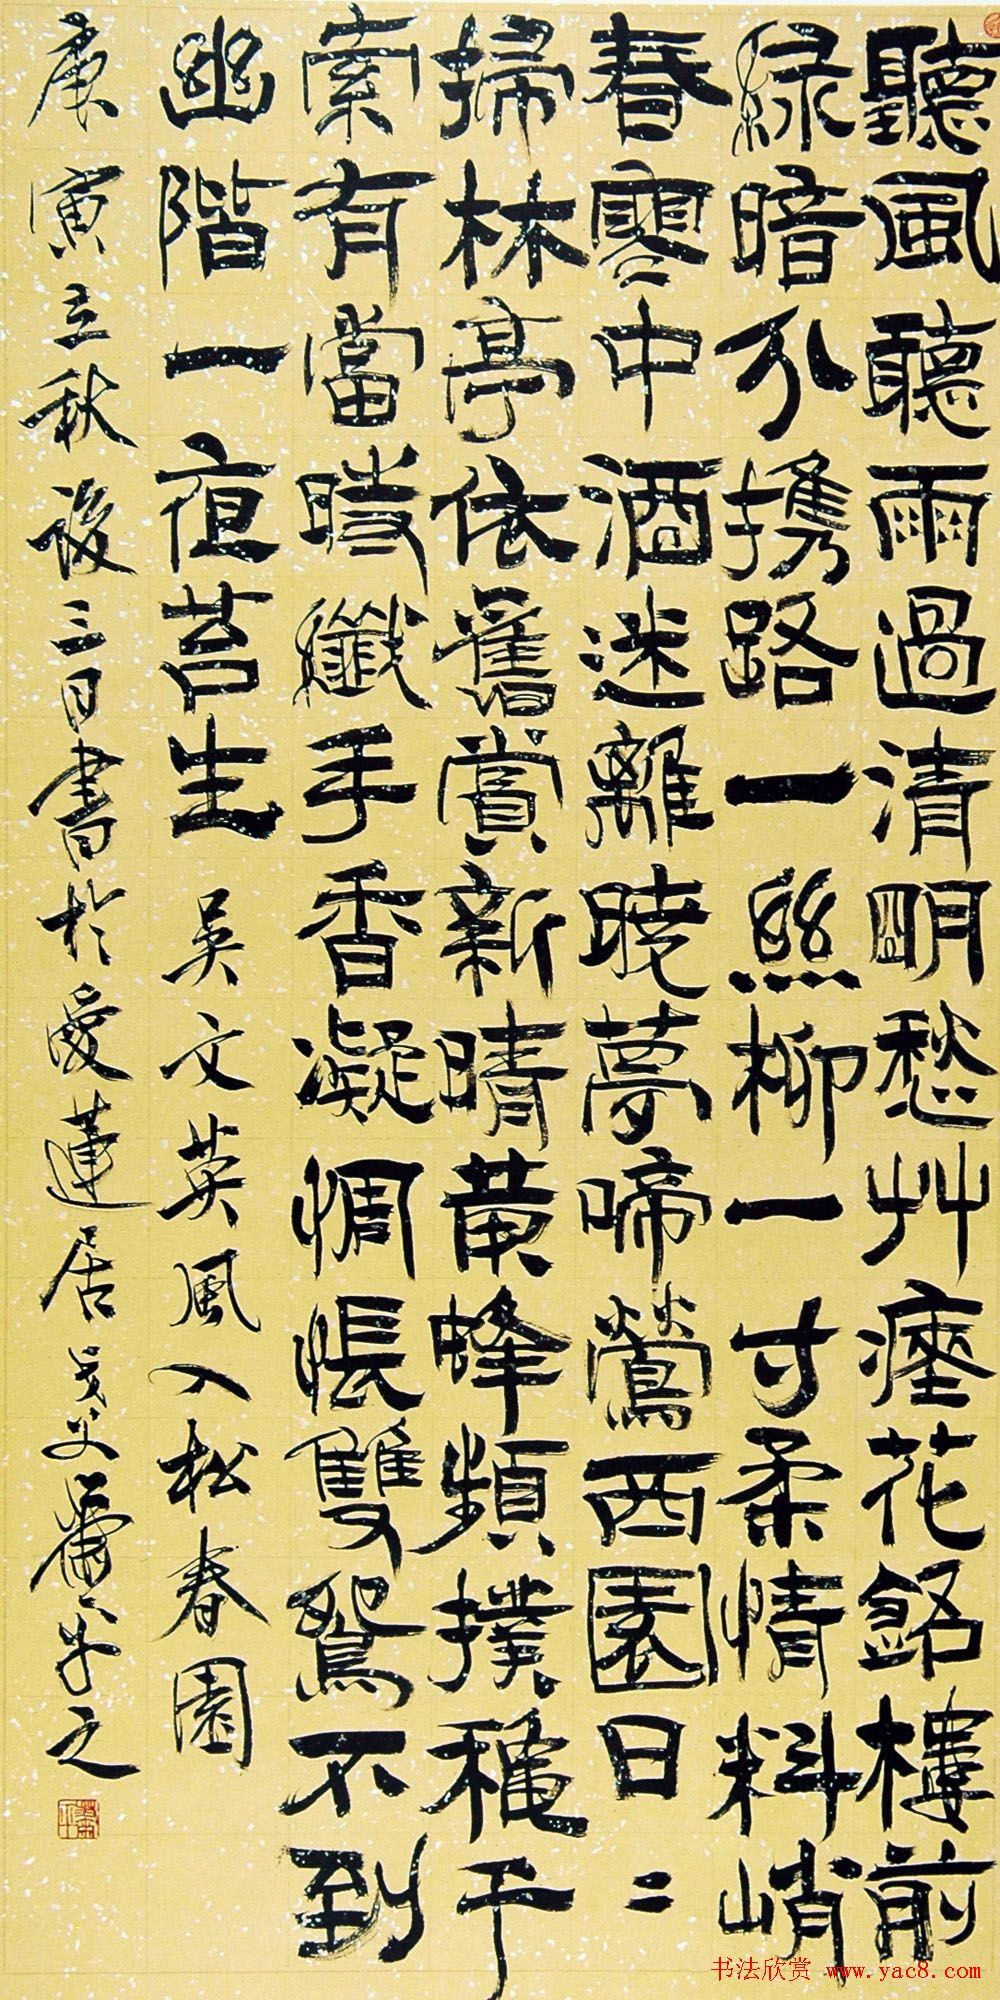 聽風聽雨過清明愁艸瘞花銘樓前
緑暗分携路一絲柳一寸柔情料峭
春寒中酒迷離曉夢啼鶯西園日〻
掃林亭依舊賞新晴黃蜂頻撲穐千
索有當時纖手香凝惆悵雙鴛不到
幽階一夜苔生 吳文英風入松春園
庚寅立秋後三日書於愛蓮居 蕭平之
书法欣赏 www.yac8.com